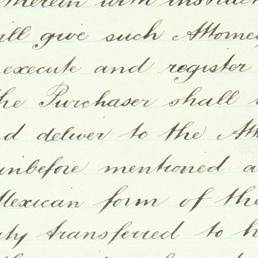 therein with
will give such Attorney
execute and register
the Purchaser shall
d deliver to the At
inbefore mentioned a
Mexican form of the
ly transferred to h